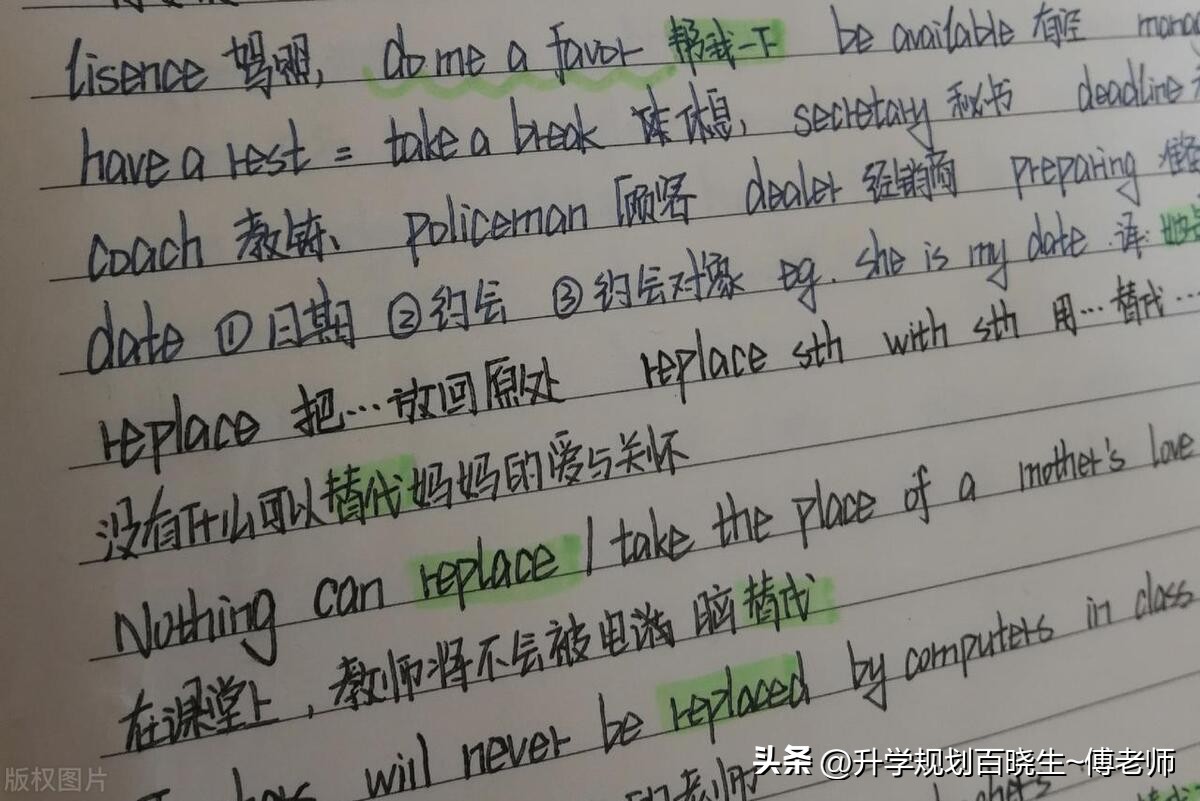 lisence 驾照, do me a favor 帮我一下 be available 有空
have a rest = take a break 休息, secretary 秘书 deadline
coach 教练、 policeman 顾客 dealer 经销商 preparing 准备
date ①日期 ②约会 ③约会对象 eg. she is my date 译:
replace 把…放回原处 replace sth with sth 用…替代…
没有什么可以替代妈妈的爱与关怀
Nothing can replace / take the place of a mother's love
在课堂上,教师将不会被电脑替代
will never be replaced by computers in class
的教师
头条 @升学规划百晓生~傅老师
版权图片